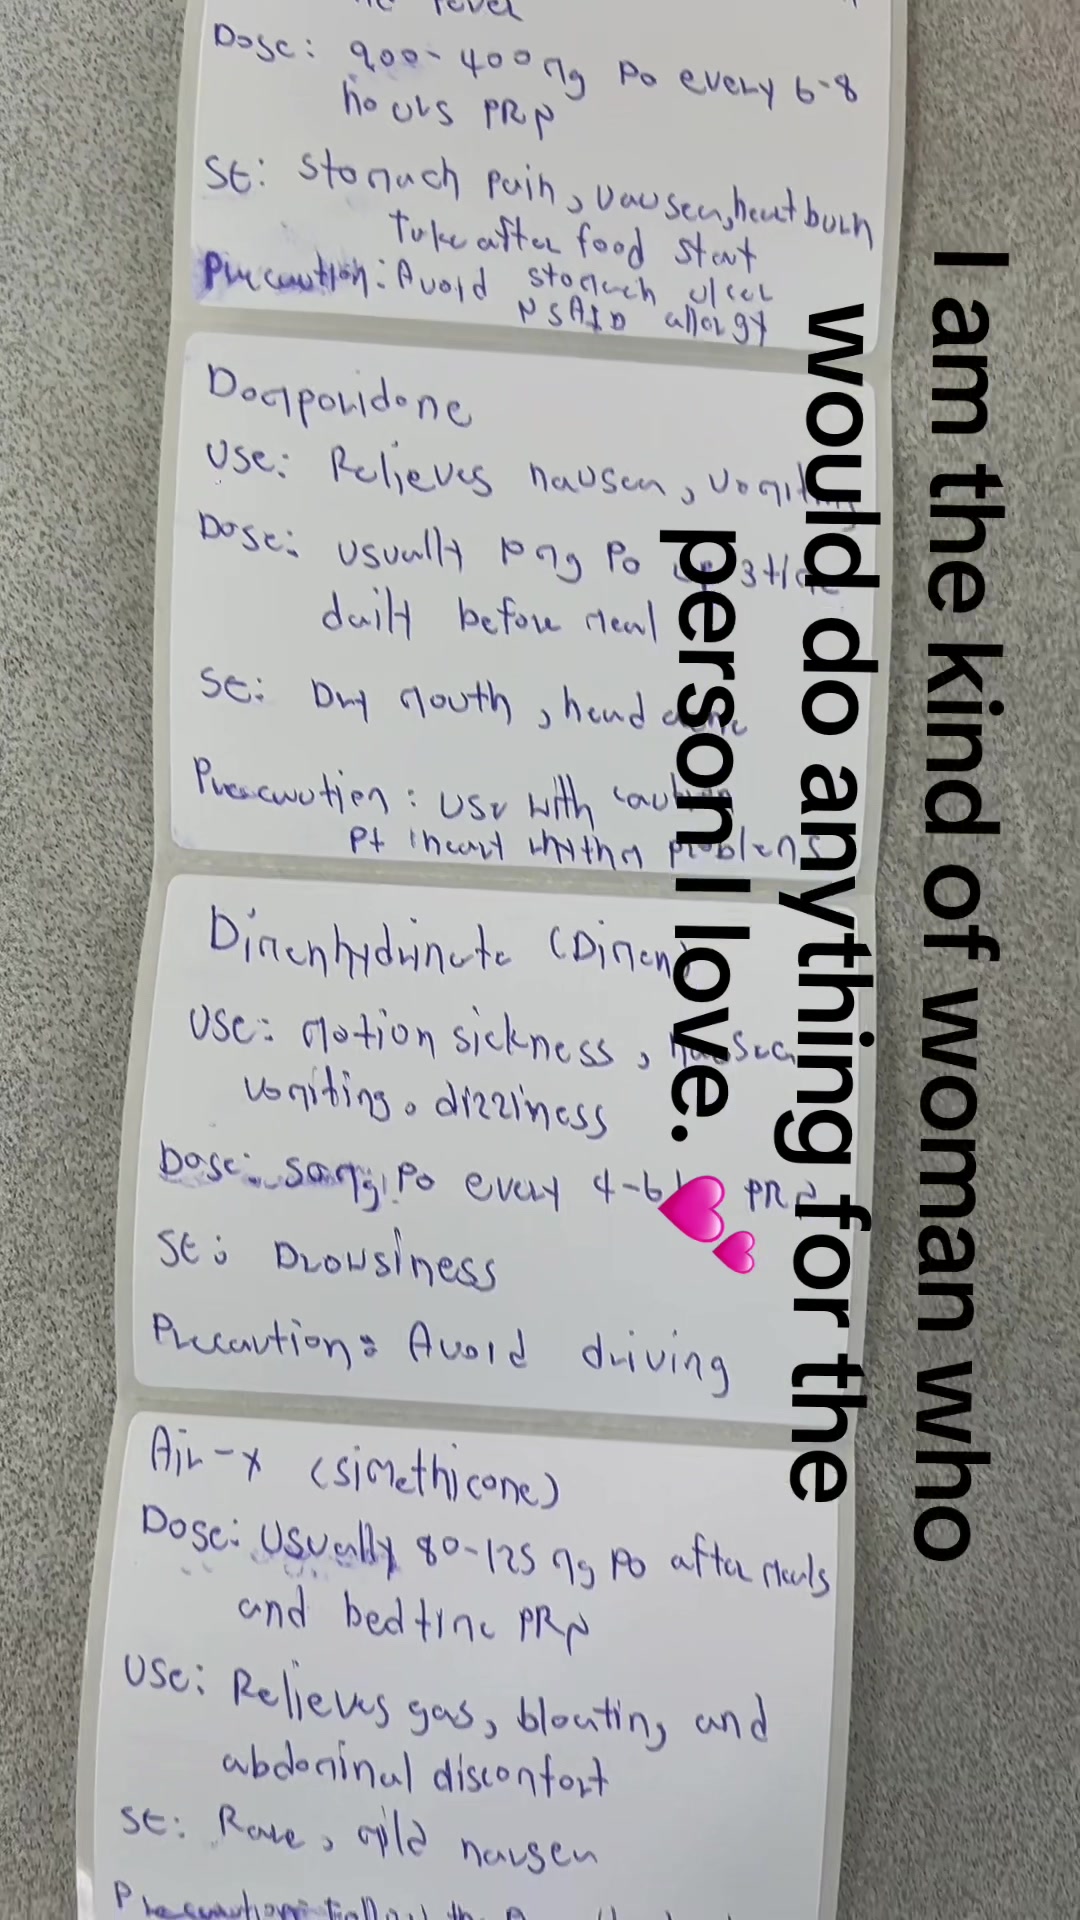 Dose: 200-400mg Po every 6-8
hours PRN
SE: stomach pain, nausea, heart burn
Take after food start
Precaution: Avoid stomach ulcer
NSAID allergy
Domporidone
Use: Relieves nausea, vomiting
Dose: usually 10mg Po
daily before meal
SE: Dry mouth, head
Precaution: Use with caution
Pt in heart rhythm problems
Dimenhydrinate (Dimen)
Use: Motion sickness, nausea
vomiting. dizziness
Dose: 50mg Po every 4-6 PRN
SE: Drowsiness
Precaution: Avoid driving
Air-x (simethicone)
Dose: Usually 80-125 mg Po after meals
and bedtime PRN
Use: Relieves gas, bloating, and
abdominal discomfort
SE: Rare, mild nausea
Precaution: Follow the
I am the kind of woman who
would do anything for the
person I love. 💕